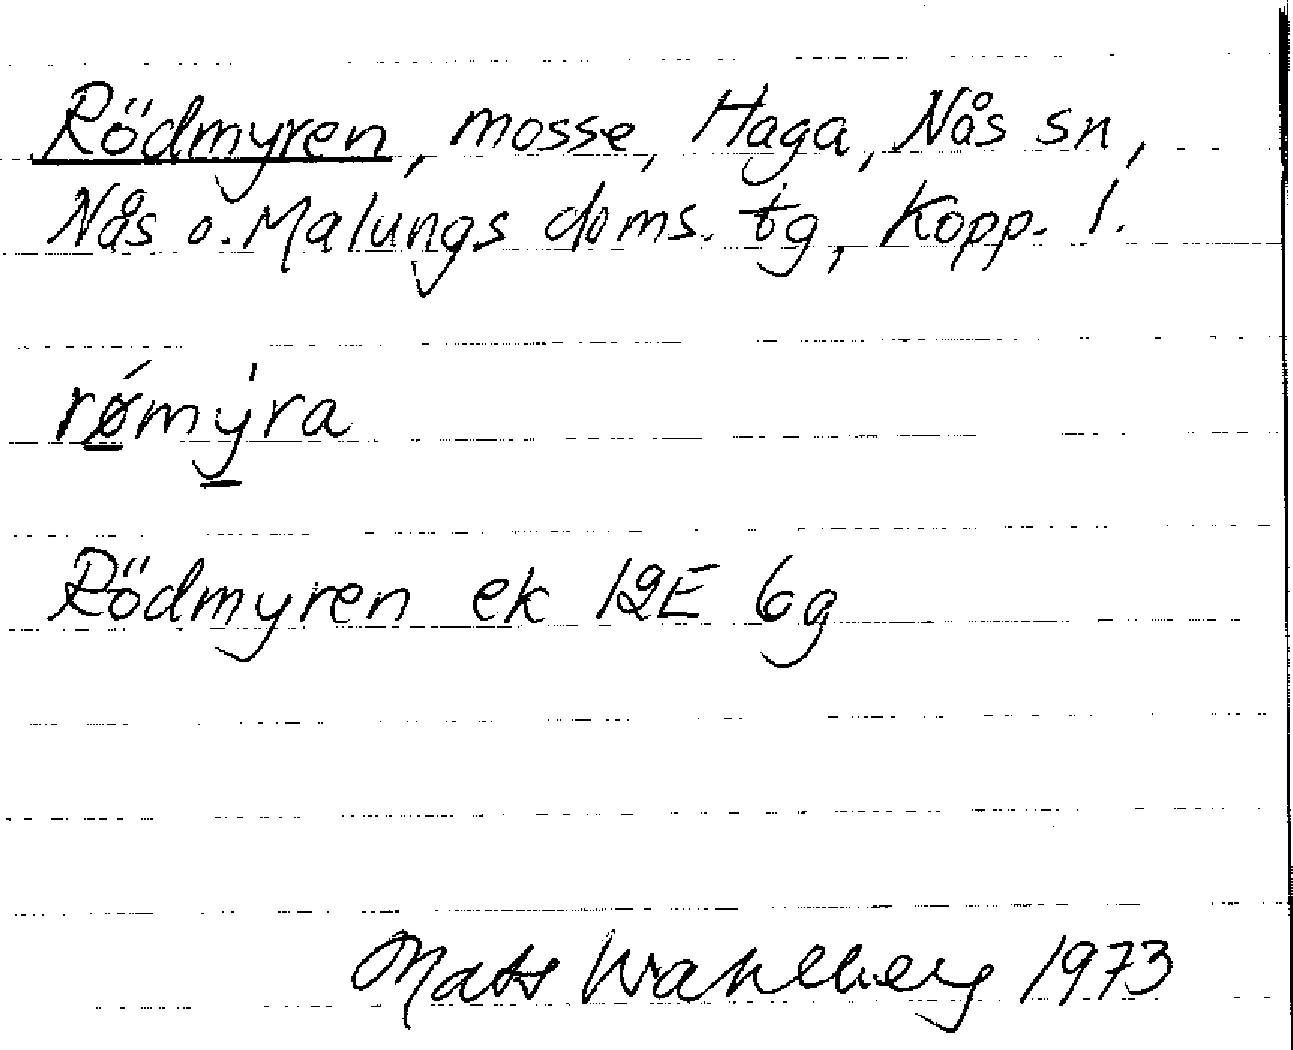 Rödmyren, mosse, Haga, Nås sn,
Nås o. Malungs doms. tg, Kopp. l.
rǿmýra
Rödmyren ek 12E 6g
Mats Wahlberg 1973